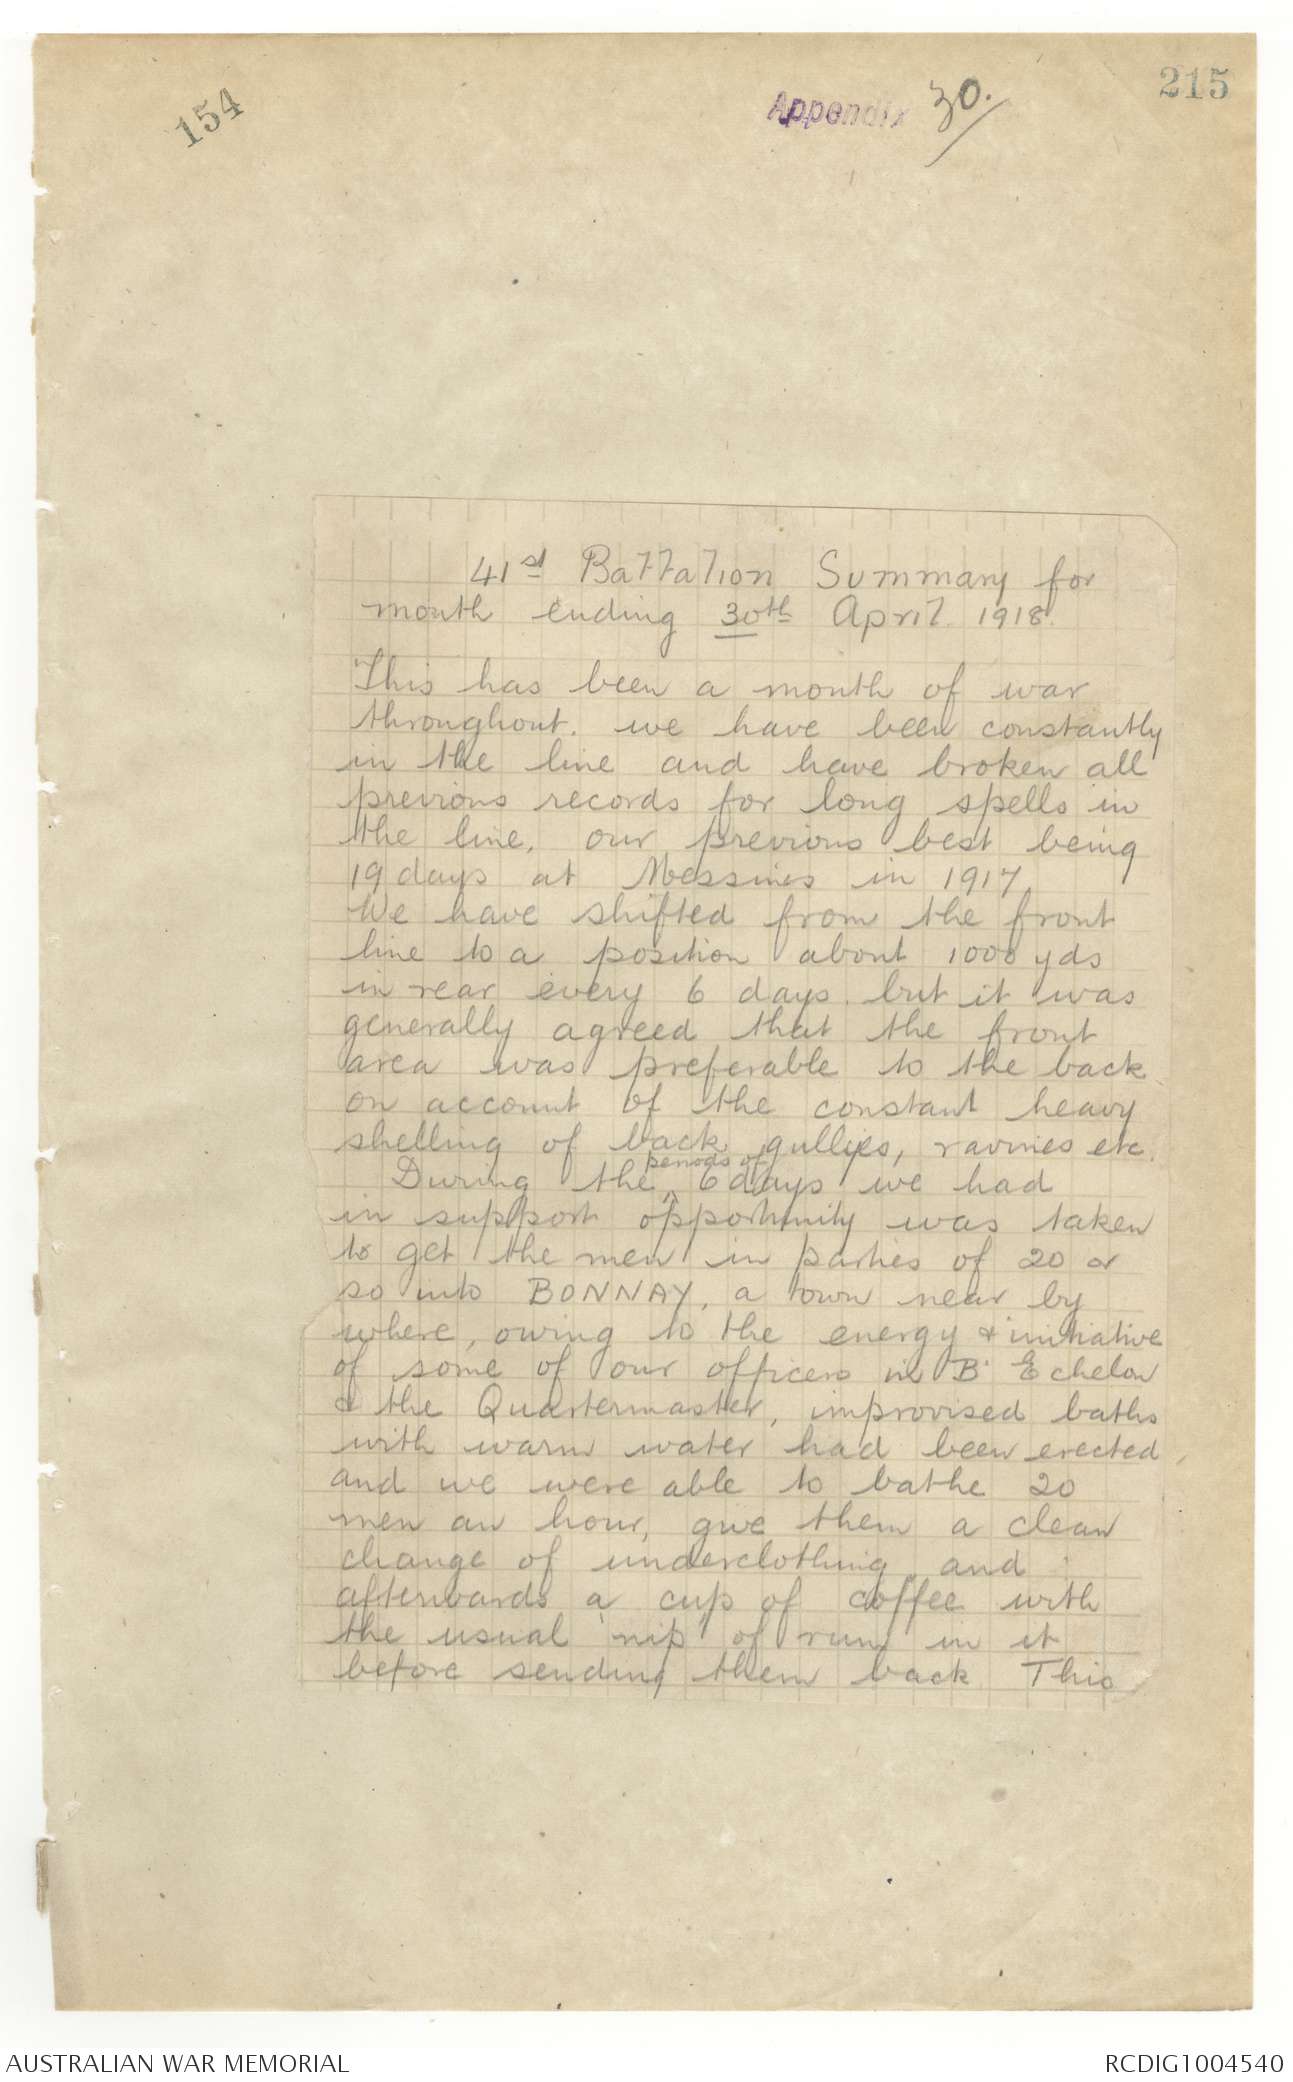 154
Appendix 30.
215
41st Battalion Summary for
month ending 30th April 1918.
This has been a month of war
throughout. we have been constantly
in the line and have broken all
previous records for long spells in
the line, our previous best being
19 days at Messines in 1917.
We have shifted from the front
line to a position about 1000 yds
in rear every 6 days but it was
generally agreed that the front
area was preferable to the back
on account of the constant heavy
shelling of back gullies, ravines etc.
periods of
During the ^ 6 days we had
in support opportunity was taken
to get the men in parties of 20 or
so into BONNAY, a town near by
where, owing to the energy & initiative
of some of our officers in B Echelon
& the Quartermaster, improvised baths
with warm water had been erected,
and we were able to bathe 20
men an hour, give them a clean
change of underclothing and
afterwards a cup of coffee with
the usual "nip" of rum in it
before sending them back. This
AUSTRALIAN WAR MEMORIAL
RCDIG1004540